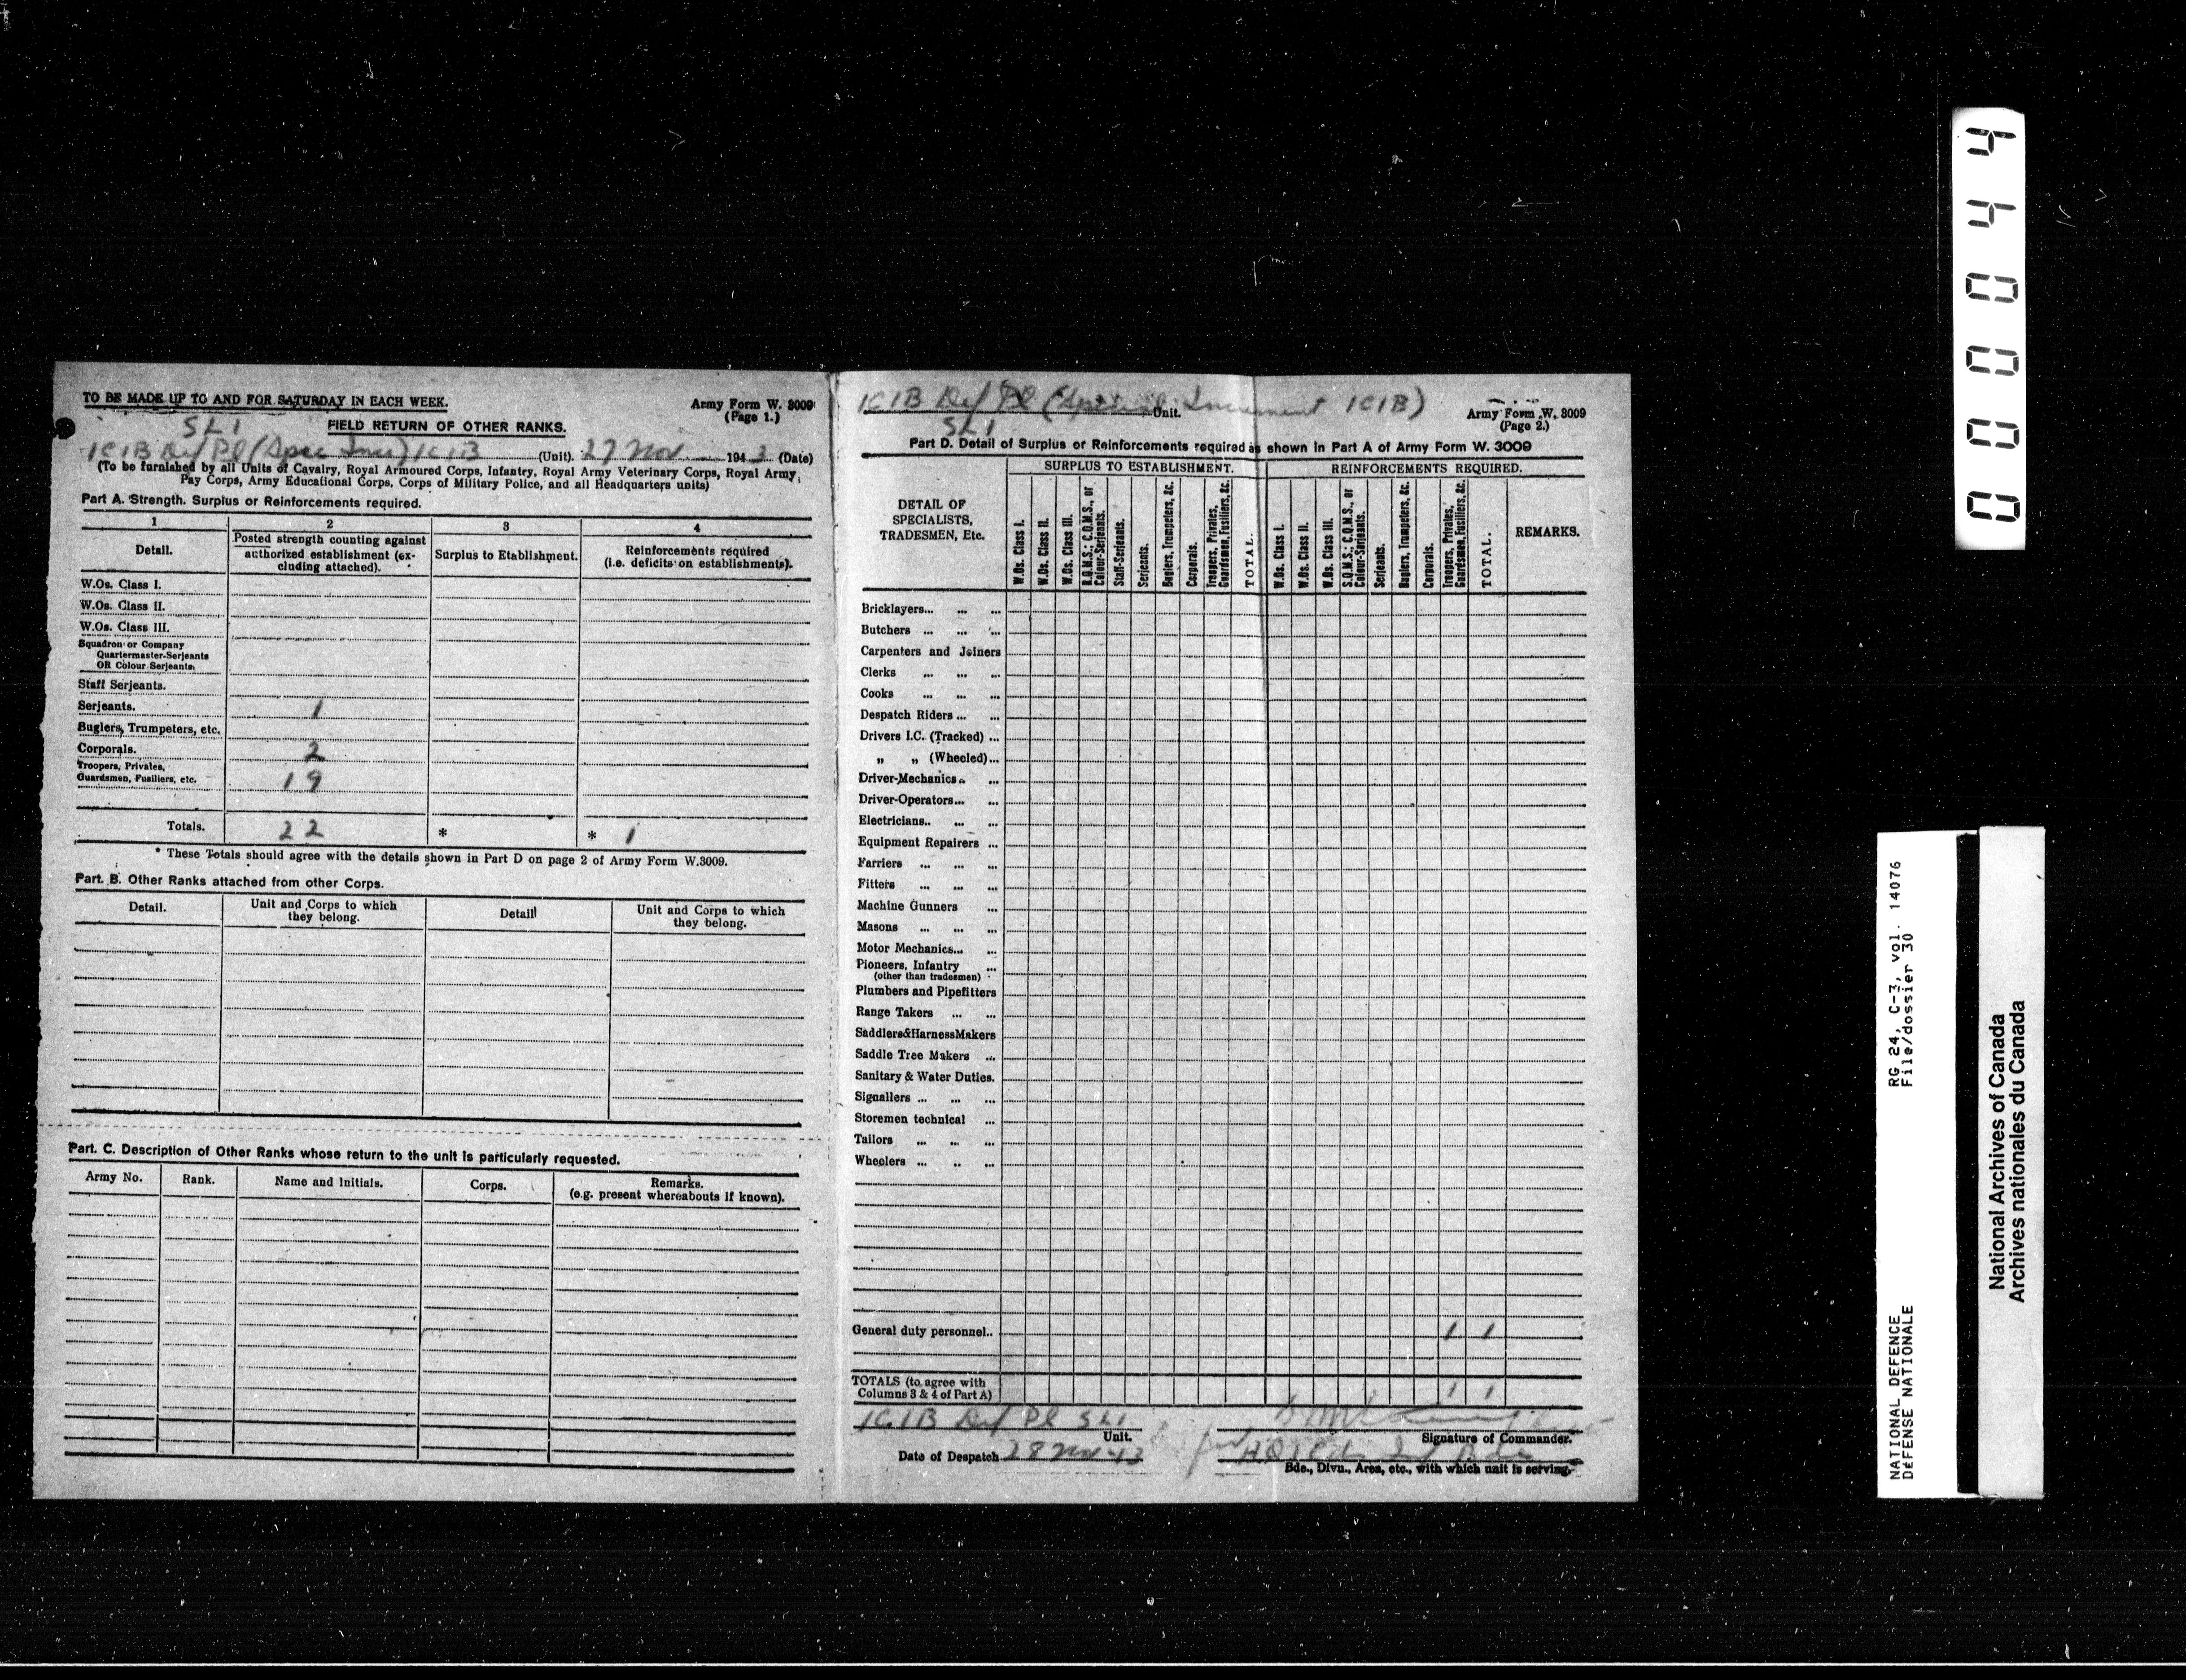 TO BE MADE UP TO AND FOR SATURDAY IN EACH WEEK.
Army Form W. 3009
(Page 1.)
SLI
FIELD RETURN OF OTHER RANKS.
1CIB Def Pl (Spec Incr) 1CIB (Unit). 27 Nov 1943 (Date)
(To be furnished by all Units of Cavalry, Royal Armoured Corps, Infantry, Royal Army Veterinary Corps, Royal Army
Pay Corps, Army Educational Corps, Corps of Military Police, and all Headquarters units)
Part A. Strength. Surplus or Reinforcements required.
1 2 3 4
Detail. Posted strength counting against authorized establishment (excluding attached). Surplus to Etablishment. Reinforcements required (i.e. deficits on establishments).
W.Os. Class I.
W.Os. Class II.
W.Os. Class III.
Squadron or Company
Quartermaster-Serjeants
OR Colour Serjeants.
Staff Serjeants.
Serjeants. 1
Buglers, Trumpeters, etc.
Corporals. 2
Troopers, Privates,
Guardsmen, Fusiliers, etc. 19
Totals. 22 * * 1
* These Totals should agree with the details shown in Part D on page 2 of Army Form W.3009.
Part. B. Other Ranks attached from other Corps.
Detail. Unit and Corps to which they belong. Detail Unit and Corps to which they belong.
Part. C. Description of Other Ranks whose return to the unit is particularly requested.
Army No. Rank. Name and Initials. Corps. Remarks. (e.g. present whereabouts if known).
1CIB Def Pl (Special Increment 1CIB) Unit.
SLI
Army Form W. 3009
(Page 2.)
Part D. Detail of Surplus or Reinforcements required as shown in Part A of Army Form W. 3009
DETAIL OF SPECIALISTS, TRADESMEN, Etc.
SURPLUS TO ESTABLISHMENT.
W.Os. Class I.
W.Os. Class II.
W.Os. Class III.
R.Q.M.S.; C.Q.M.S., or Colour-Serjeants.
Staff-Serjeants.
Serjeants.
Buglers, Trumpeters, &c.
Corporals.
Troopers, Privates, Guardsmen, Fusiliers, &c.
TOTAL.
REINFORCEMENTS REQUIRED.
W.Os. Class I.
W.Os. Class II.
W.Os. Class III.
S.Q.M.S.; C.Q.M.S., or Colour-Serjeants.
Serjeants.
Buglers, Trumpeters, &c.
Corporals.
Troopers, Privates, Guardsmen, Fusiliers, &c.
TOTAL.
REMARKS.
Bricklayers... ... ...
Butchers ... ... ...
Carpenters and Joiners
Clerks ... ... ...
Cooks ... ... ...
Despatch Riders ... ...
Drivers I.C. (Tracked) ...
„ „ (Wheeled)...
Driver-Mechanics.. ...
Driver-Operators... ...
Electricians.. ... ...
Equipment Repairers ...
Farriers ... ... ...
Fitters ... ... ...
Machine Gunners ...
Masons ... ... ...
Motor Mechanics... ...
Pioneers, Infantry ...
(other than tradesmen)
Plumbers and Pipefitters
Range Takers ... ...
Saddlers&HarnessMakers
Saddle Tree Makers ...
Sanitary & Water Duties.
Signallers ... ... ...
Storemen technical ...
Tailors ... ... ...
Wheelers ... .. ...
General duty personnel.. 1 1
TOTALS (to agree with
Columns 3 & 4 of Part A) 1 1
1CIB Def Pl SLI
Unit.
Signature of Commander.
Date of Despatch 28 Nov 43
for HQ 1 Cdn Inf Bde
Bde., Divn., Area, etc., with which unit is serving.
000044
NATIONAL DEFENCE RG 24, C-3, vol. 14076
DÉFENSE NATIONALE File/dossier 30
National Archives of Canada
Archives nationales du Canada